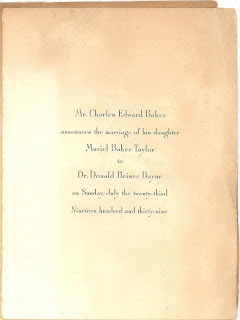 Mr. Charles Edward Baker
announces the marriage of his daughter
Muriel Baker Taylor
to
Dr. Donald Heiser Bayne
on Sunday, July the twenty-third
Nineteen hundred and thirty-nine